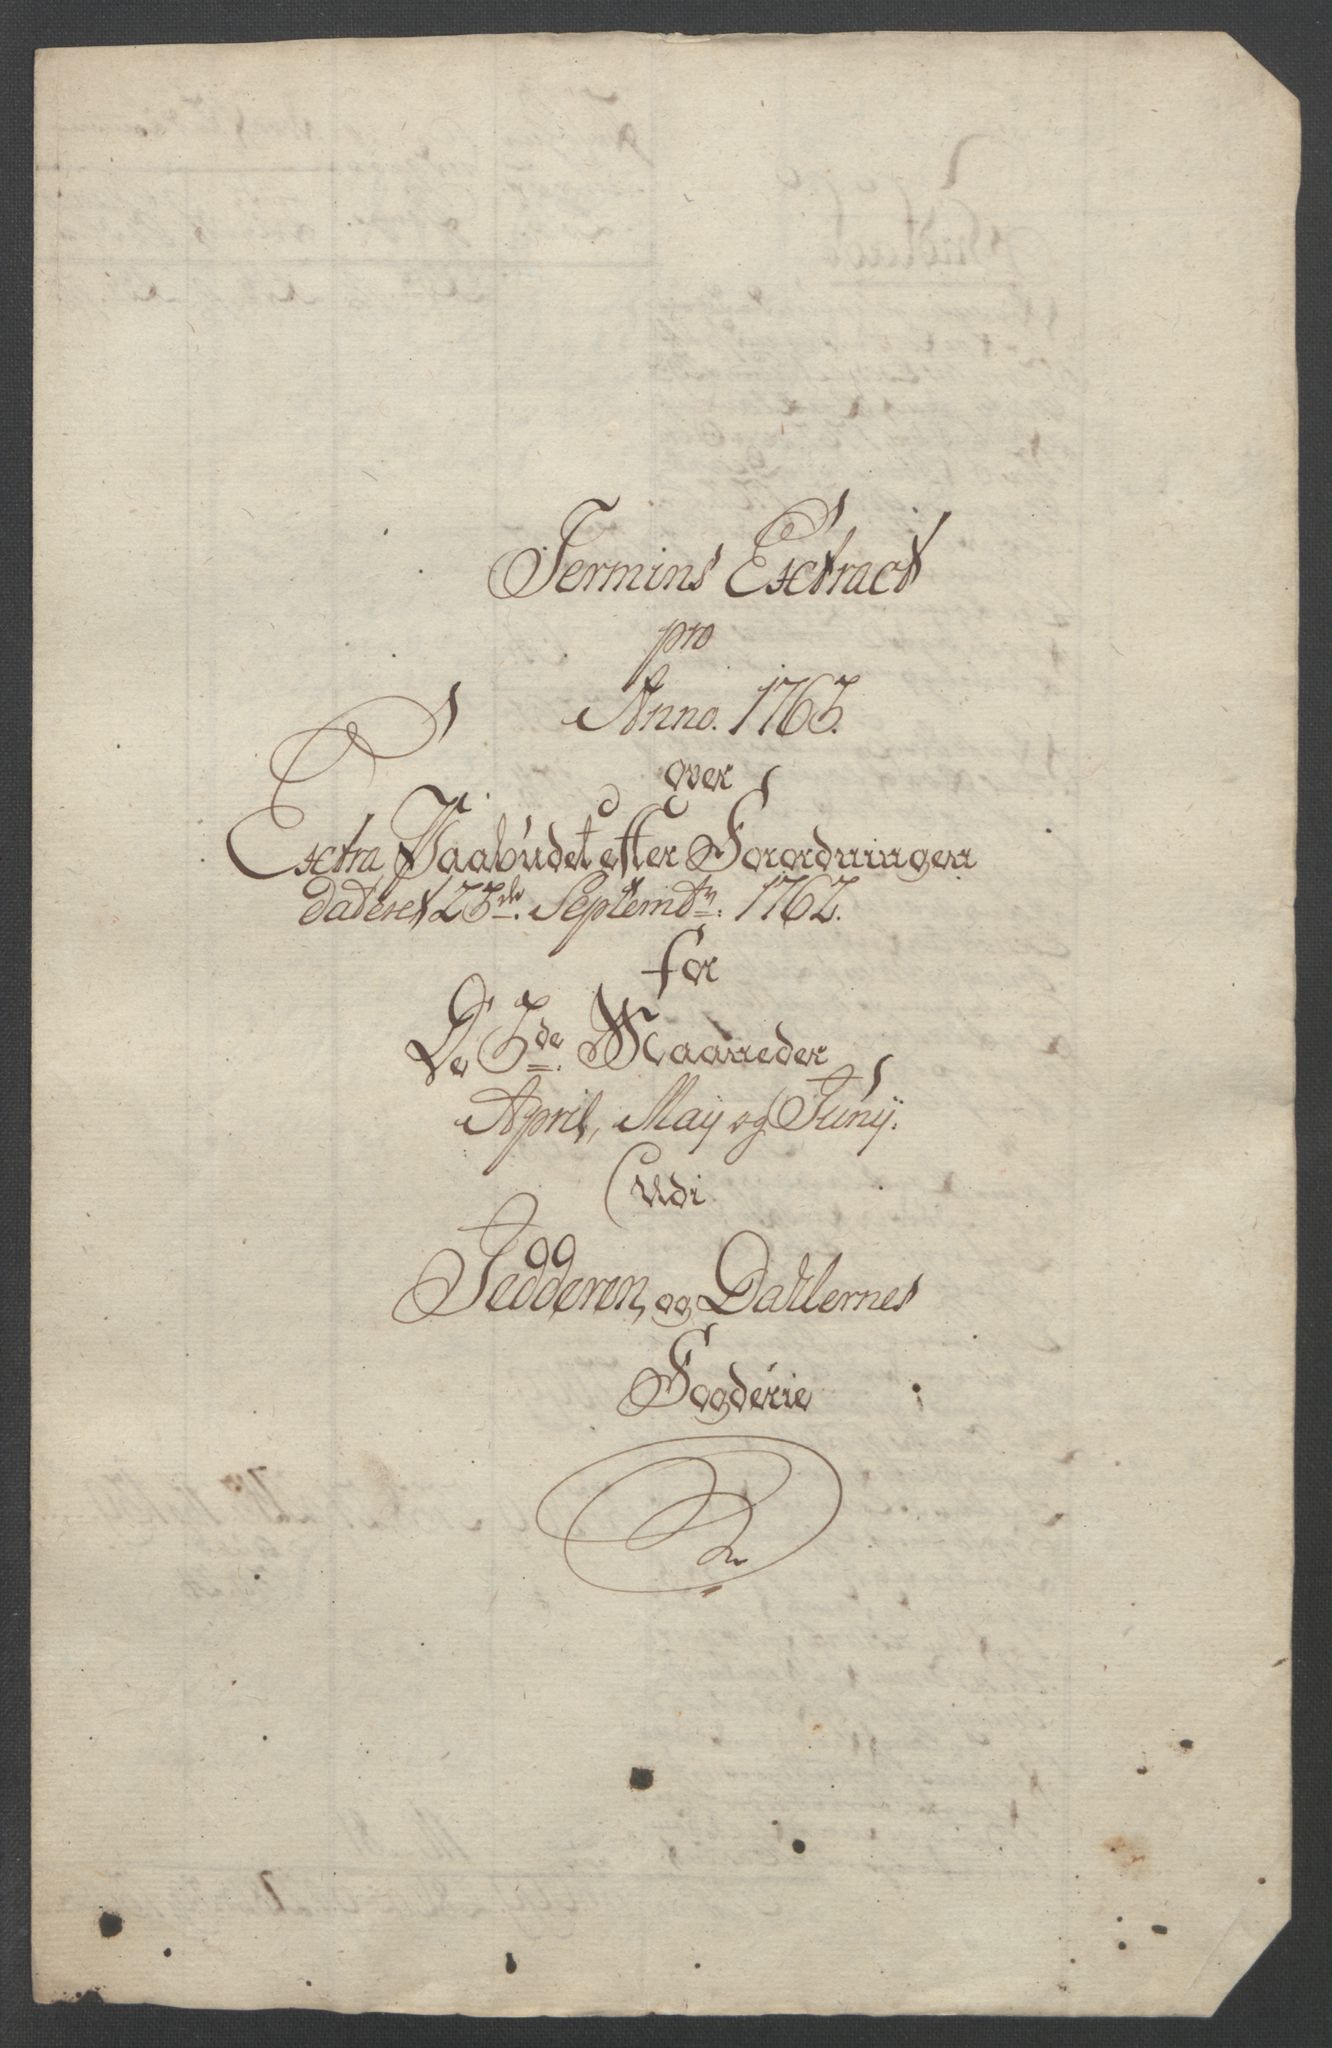 Termins Extract
pro
Anno. 1763.
over
Extra Paabudet efter Forordningen
dateret 23de. Septembr. 1762.
for
De 3de. Maaneder
April, May og Junij.
udi
Jedderen og Dahlernes
Fogderie